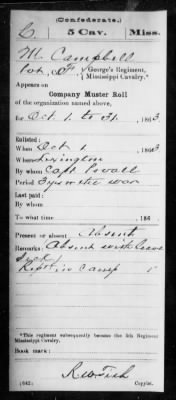 (Confederate.)
C 5 Cav. Miss.
M. Campbell
Pvt, Co. F, George's Regiment,
Mississippi Cavalry.*
Appears on
Company Muster Roll
of the organization named above,
for Oct 1 to 31, 1863
Enlisted:
When Oct 1, 1863
Where Lexington
By whom Capt
Period 3 yrs or the war
Last paid:
By whom
To what time , 186 .
Present or absent Absent
Remarks: Absent with leave
sick
Kept in Camp
*This regiment subsequently became the 5th Regiment
Mississippi Cavalry.
Book mark:
(642)
Copyist.